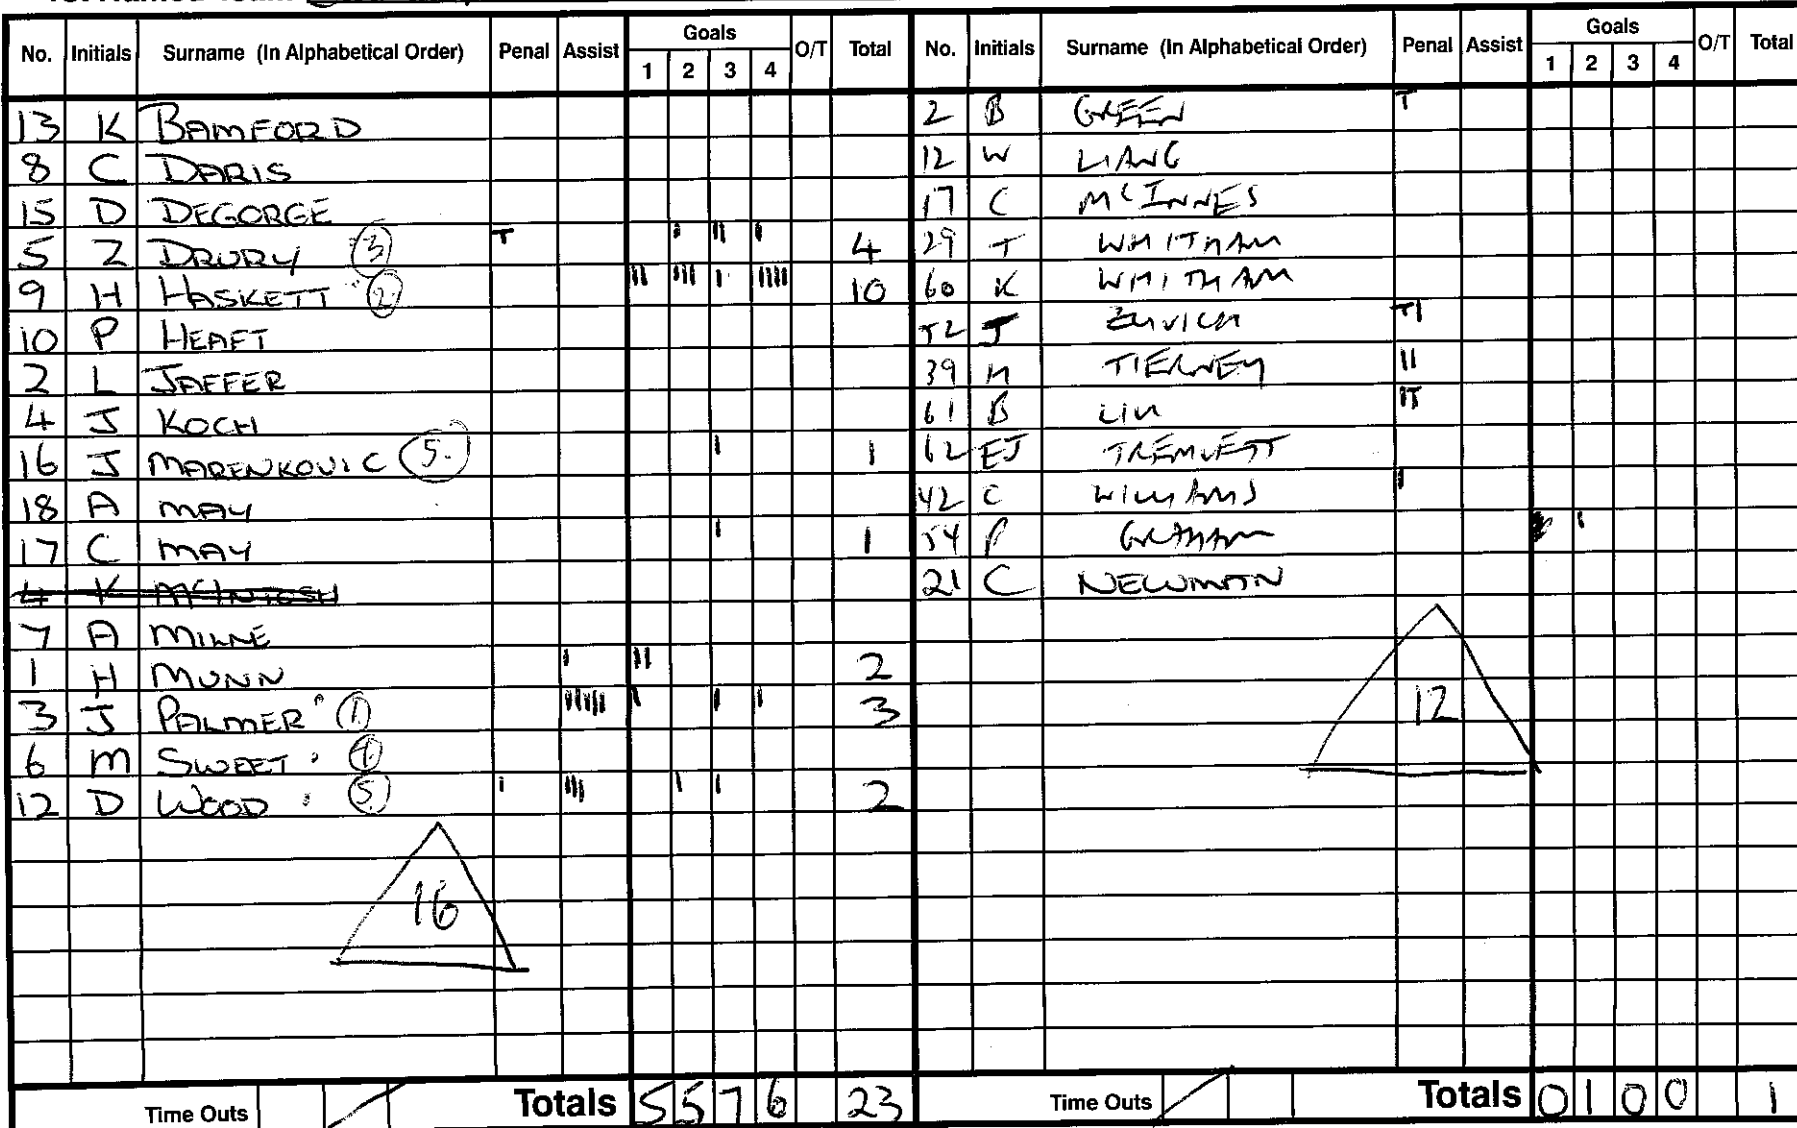 No. Initials Surname (In Alphabetical Order) Penal Assist Goals 1 2 3 4 O/T Total
13 K BAMFORD
8 C DARIS
15 D DEGORGE
5 Z DRURY 3 T I II I 4
9 H HASKETT 2 III III I IIII 10
10 P HEAFT
2 L JAFFER
4 J KOCH
16 J MARENKOVIC 5. I 1
18 A MAY
17 C MAY I 1
4 K MCINTOSH
7 A MILNE
1 H MUNN I II 2
3 J PALMER 1 I I I 3
6 M SWEET 4
12 D WOOD 5 I III I I 2
16
Time Outs Totals 5 5 7 6 23
No. Initials Surname (In Alphabetical Order) Penal Assist Goals 1 2 3 4 O/T Total
2 B GREEN T
12 W LIANG
17 C McINNES
29 T WHITHAM
60 K WHITHAM
52 J TI
39 M TIERNEY II
61 B LIU IT
62 EJ TREMLETT
42 C WILLIAMS I
54 P GRAHAM I
21 C NEWMAN
12
Time Outs Totals 0 1 0 0 1